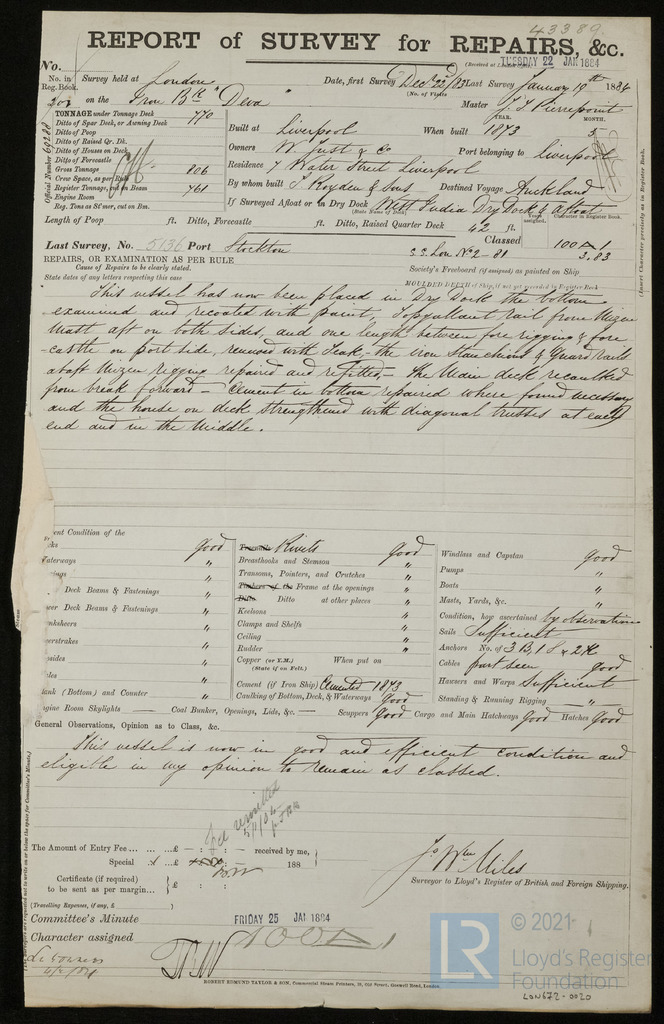 43389
REPORT of SURVEY for REPAIRS, &c.
(Received at
TUESDAY 22 JAN 1884
No.
No. in Reg. Book.
Survey held at London
Date, first Survey Decr 22/83 Last Survey January 19th 1884
(No. of Visits
on the Iron Bk "Deva"
Master J. J. Pierrepoint
TONNAGE under Tonnage Deck 770
Ditto of Spar Deck, or Awning Deck
Ditto of Poop
Ditto of Raised Qr. Dk.
Ditto of Houses on Deck
Ditto of Forecastle
Gross Tonnage 806
Crew Space, as per Rule
Register Tonnage, cut on Beam 761
Engine Room
Reg. Tons as St'mer, cut on Bm.
Official Number 69288
YEAR. MONTH.
Built at Liverpool When built 1873 5
Owners W. Just & Co Port belonging to Liverpool
Residence 7 Water Street Liverpool
By whom built T. Royden & Sons Destined Voyage Auckland
If Surveyed Afloat or in Dry Dock West India Dry Dock & afloat
(State Name of Dock)
Years assigned. Character in Register Book.
(Insert Character precisely as in Register Book.
Length of Poop ft. Ditto, Forecastle ft. Ditto, Raised Quarter Deck 42 ft.
Classed 100 A 1
Last Survey, No. 5136 Port Stockton
S.S. Lon No 2 - 81 3.83
REPAIRS, OR EXAMINATION AS PER RULE
Cause of Repairs to be clearly stated.
State dates of any letters respecting this case
Society's Freeboard (if assigned) as painted on Ship
MOULDED DEPTH of Ship, if not yet recorded in Register Book
This vessel has now been placed in Dry Dock the bottom
examined and recoated with paint, Topgallant rail from Mizen
Mast aft on both sides, and one length between fore rigging & fore
-castle on port side, renewed with Teak,- the iron Stanchions & Guard Rails
abaft Mizen rigging repaired and refitted,- The Main deck recaulked
from break forward - Cement in bottom repaired where found necessary
and the house on deck strengthened with diagonal trusses at each
end and in the Middle.
ent Condition of the
cks Good
aterways "
ings "
Deck Beams & Fastenings "
wer Deck Beams & Fastenings "
nksheers "
perstrakes "
psides "
les "
ank (Bottom) and Counter "
Treenails Rivets Good
Breasthooks and Stemson "
Transoms, Pointers, and Crutches "
Timbers of the Frame at the openings "
Ditto Ditto at other places "
Keelsons "
Clamps and Shelfs "
Ceiling "
Rudder "
Copper (or Y.M.) When put on
(State if on Felt.)
Cement (if Iron Ship) Cemented 1873
Caulking of Bottom, Deck, & Waterways Good
Windlass and Capstan Good
Pumps "
Boats "
Masts, Yards, &c. "
Condition, how ascertained by observation
Sails Sufficient
Anchors No. of 3 B, 1 S & 2 K
Cables part seen good
Hawsers and Warps Sufficient
Standing & Running Rigging - "
ngine Room Skylights Coal Bunker, Openings, Lids, &c. Scuppers Good Cargo and Main Hatchways Good Hatches Good
General Observations, Opinion as to Class, &c.
This vessel is now in good and efficient condition and
eligible in my opinion to remain as classed.
The Amount of Entry Fee ... £ : : received by me,
Special ... £ 188
Certificate (if required) to be sent as per margin... £
(Travelling Expenses, if any, £ )
Jos Wm Miles
Surveyor to Lloyd's Register of British and Foreign Shipping.
Committee's Minute
FRIDAY 25 JAN 1884
Character assigned 100 A 1
ROBERT EDMUND TAYLOR & SON, Commercial Steam Printers, 19, Old Street, Goswell Road, London.
LR
© 2021
Lloyd's Register
Foundation
LON672-0020